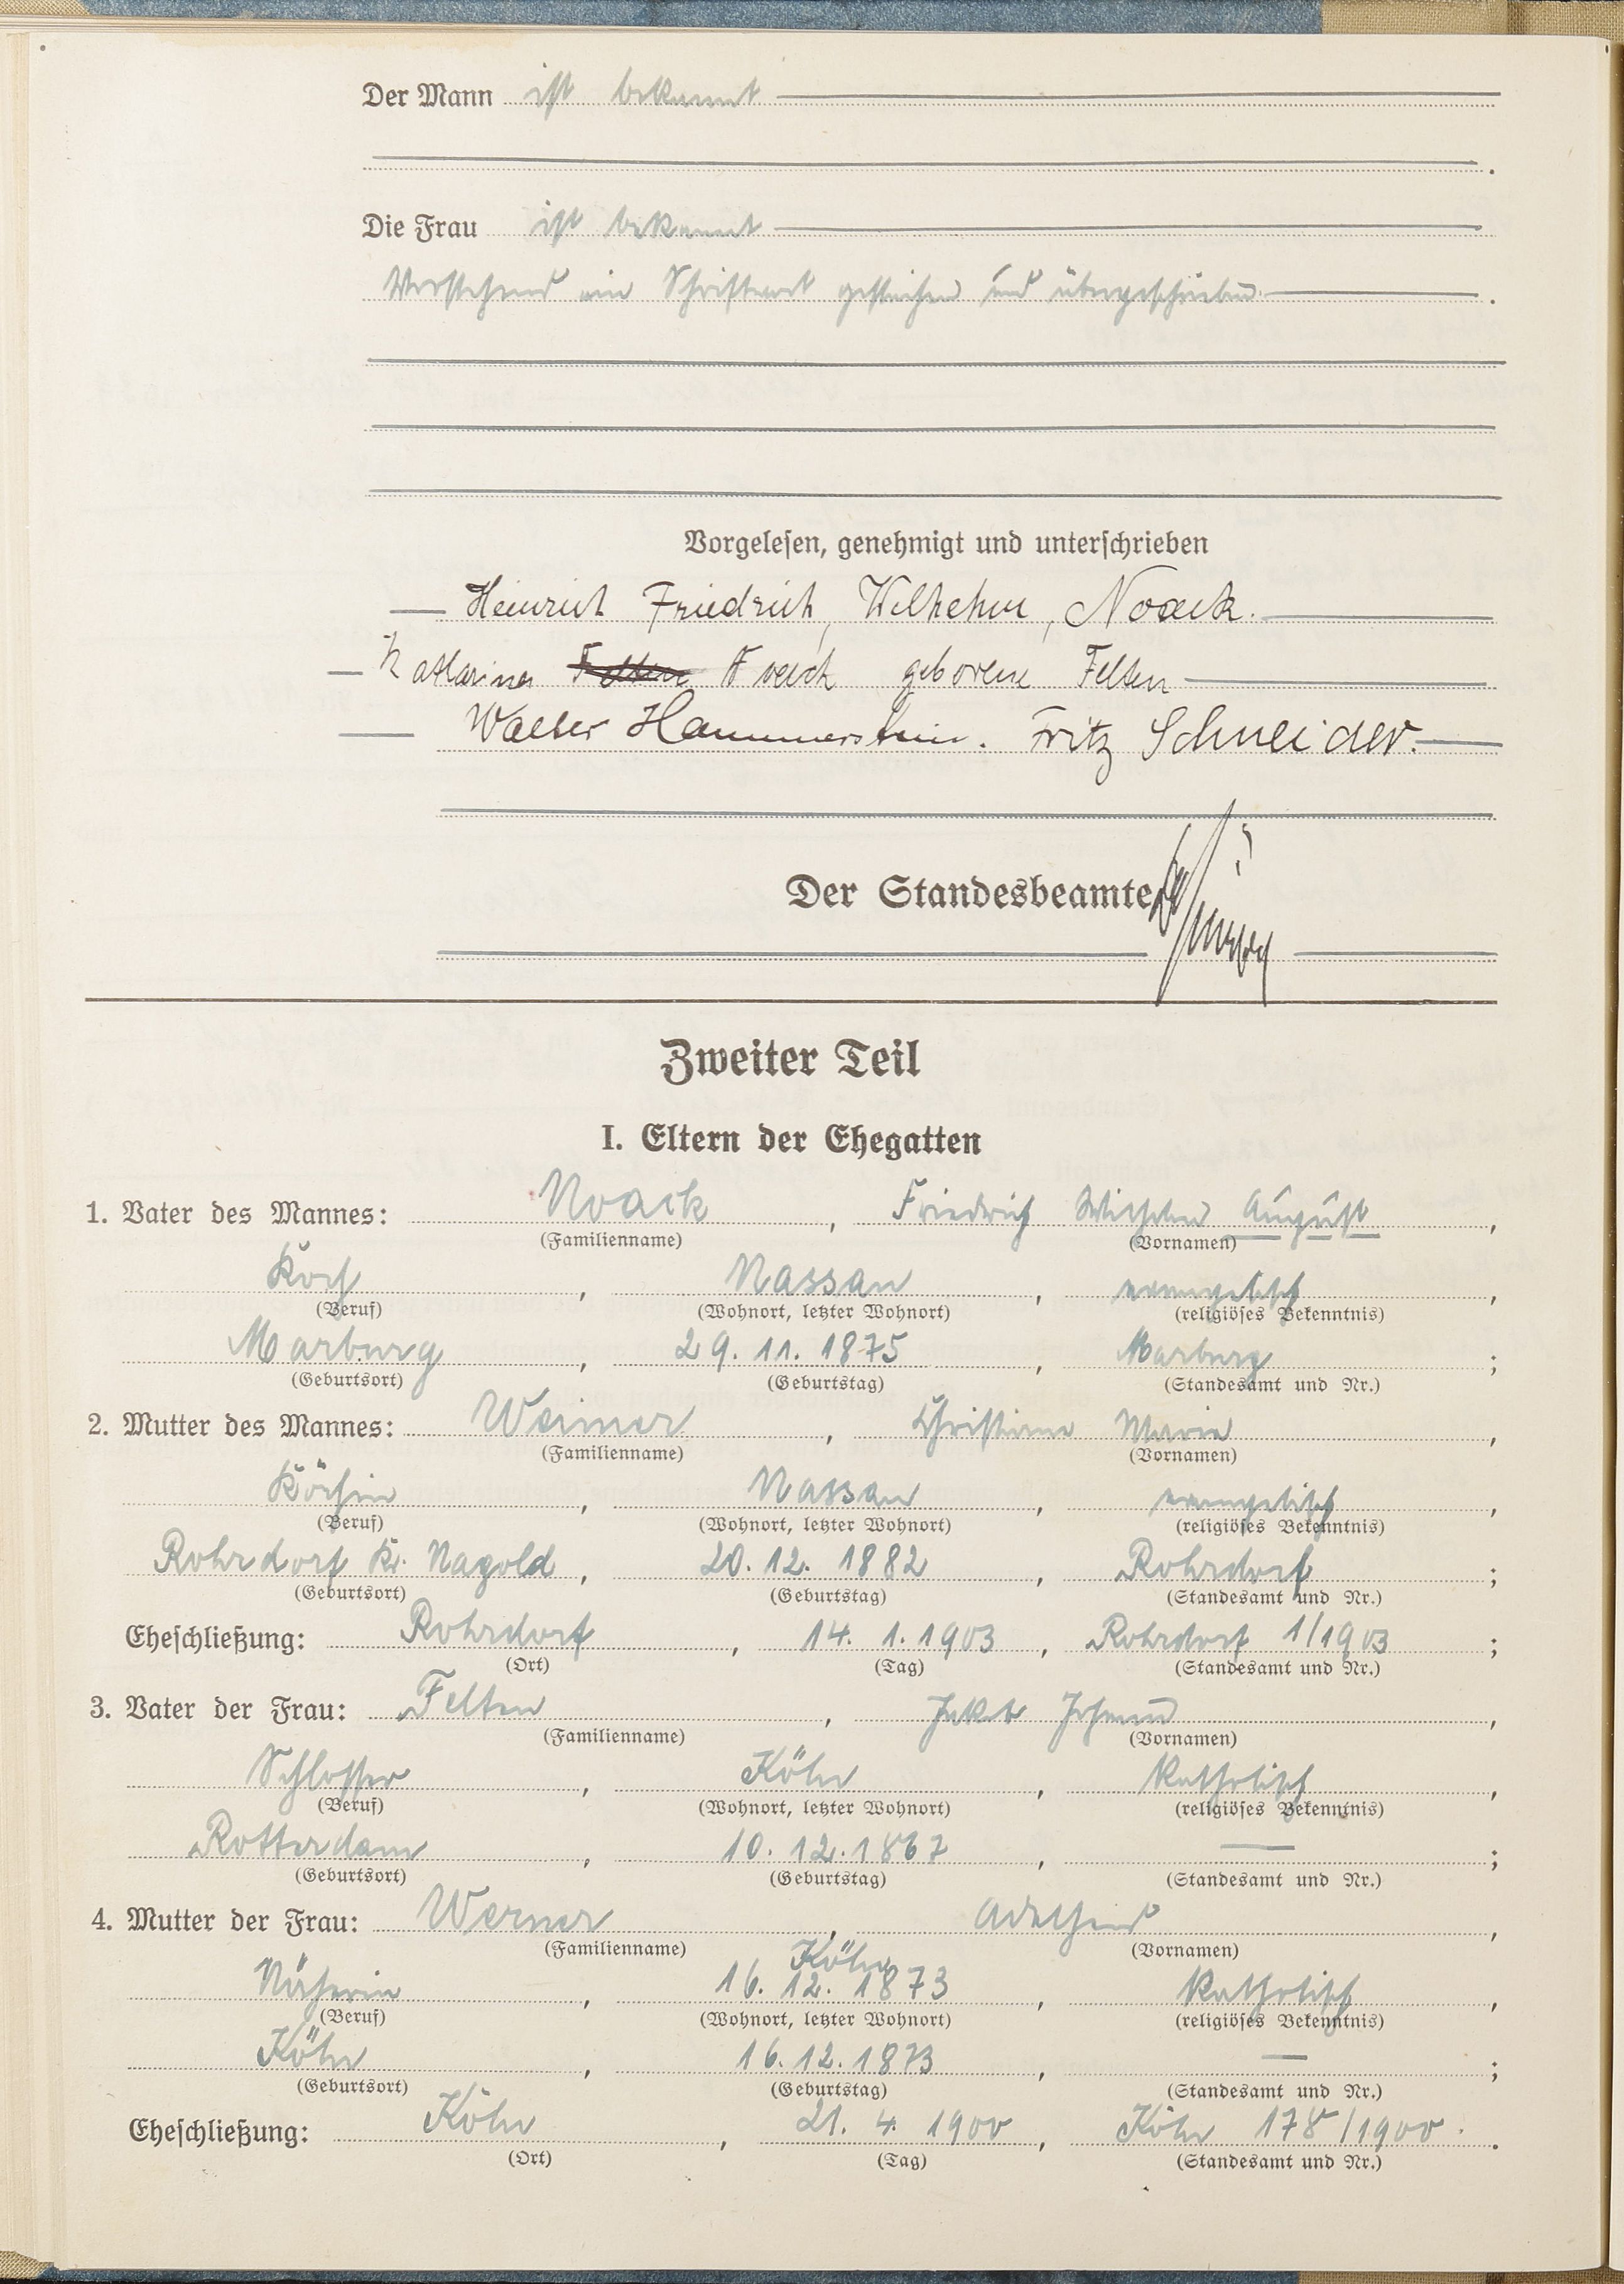 Der Mann ist bekannt
Die Frau ist bekannt
Vorstehend ein Schriftwort gestrichen und übergeschrieben.
Vorgelesen, genehmigt und unterschrieben
Heinrich Friedrich, Wilhelm, Noack.
Katharina Felten geborene Felten
Walter Hammerstein. Fritz Schneider.
Der Standesbeamte
Zweiter Teil
I. Eltern der Ehegatten
1. Vater des Mannes: Noack, Friedrich Wilhelm August,
(Familienname) (Vornamen)
Koch, Nassau, evangelisch,
(Beruf) (Wohnort, letzter Wohnort) (religiöses Bekenntnis)
Marburg, 29. 11. 1875, Marburg;
(Geburtsort) (Geburtstag) (Standesamt und Nr.)
2. Mutter des Mannes: Weimer, Christiane Marie,
(Familienname) (Vornamen)
Köchin, Nassau, evangelisch,
(Beruf) (Wohnort, letzter Wohnort) (religiöses Bekenntnis)
Rohrdorf Kr. Nagold, 20. 12. 1882, Rohrdorf;
(Geburtsort) (Geburtstag) (Standesamt und Nr.)
Eheschließung: Rohrdorf, 14. 1. 1903, Rohrdorf 1/1903;
(Ort) (Tag) (Standesamt und Nr.)
3. Vater der Frau: Felten, Jakob Johann,
(Familienname) (Vornamen)
Schlosser, Köln, katholisch,
(Beruf) (Wohnort, letzter Wohnort) (religiöses Bekenntnis)
Rotterdam, 10. 12. 1867, —;
(Geburtsort) (Geburtstag) (Standesamt und Nr.)
4. Mutter der Frau: Werner, Adelheid,
(Familienname) (Vornamen)
Köln
Näherin, 16. 12. 1873, katholisch,
(Beruf) (Wohnort, letzter Wohnort) (religiöses Bekenntnis)
Köln, 16. 12. 1873, —;
(Geburtsort) (Geburtstag) (Standesamt und Nr.)
Eheschließung: Köln, 21. 4. 1900, Köln 178/1900.
(Ort) (Tag) (Standesamt und Nr.)